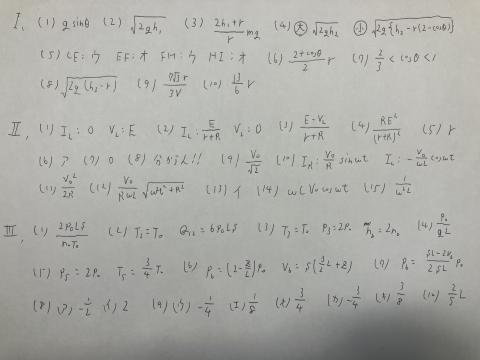 I. (1) g sinθ (2) √2gh₁ (3) (2h₁+r)/r mg (4) 大 √2gh₂ 小 √2g{h₂-r(2-cosθ)}
(5) CE: ウ EF: オ FH: ウ HI: オ (6) (2+cosθ)/2 r (7) 2/3 < cosθ < 1
(8) √2g(h₃-r) (9) (10) 13/6 r
II. (1) I_L: 0 V_L: E (2) I_L: E/(r+R) V_L: 0 (3) (E-V_L)/(r+R) (4) RE²/(r+R)² (5) r
(6) ア (7) 0 (8) 分からん!! (9) V₀/√2 (10) I_R: V₀/R sinωt I_L: -V₀/ωL cosωt
(11) V₀²/2R (12) V₀/RωL √ω²L²+R² (13) イ (14) ωCV₀cosωt (15) 1/ω²L
III. (1) 2P₀LS/n₀T₀ (2) T₂=T₀ Q₁₂=6P₀LS (3) T₃=T₀ P₃=2P₀ n_b=2n₀ (4) P₀/gL
(5) P₅=2P₀ T₅=3/4 T₀ (6) P_b=(2-z/L)P₀ V_b=S(3/2 L+z) (7) P_b= P₀
(8) ア) -1/L イ) 2 (9) (ウ) -1/4 (エ) 1/8 (オ) 3/4 (カ) -3/4 (キ) 3/8 (10) 2/5 L